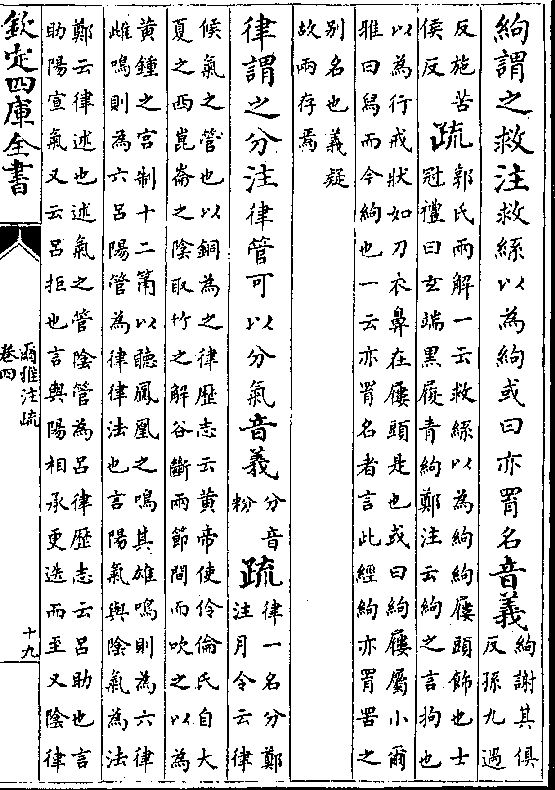 絇謂之救注救絲以為絇或曰亦罥名音義絇謝其俱
反孫九遇
反施苦
侯反疏郭氏兩解一云救絲以為絇絇屨頭飾也士
冠禮曰玄端黑屨青絇鄭注云絇之言拘也
以為行戒狀如刀衣鼻在屨頭是也或曰絇屨屬小爾
雅曰舄而今絇也一云亦罥名者言此經絇亦罥罟之
別名也義疑
故兩存焉
律謂之分注律管可以分氣音義分音
粉疏律一名分鄭
注月令云律
候氣之管也以銅為之律歴志云黄帝使伶倫氏自大
夏之西崑崙之陰取竹之解谷斷兩節間而吹之以為
黄鍾之宮制十二筩以聽鳳凰之鳴其雄鳴則為六律
雌鳴則為六呂陽管為律律法也言陽氣與陰氣為法
鄭云律述也述氣之管陰管為呂律歴志云呂助也言
助陽宣氣又云呂拒也言與陽相承更迭而至又陰律
欽定四庫全書
爾雅注疏
卷四
十九